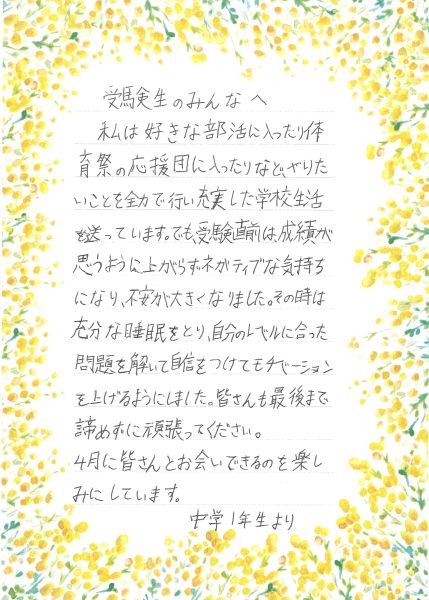 受験生のみんなへ
私は好きな部活に入ったり体
育祭の応援団に入ったりなど、やりた
いことを全力で行い充実した学校生活
を送っています。でも、受験直前は、成績が
思うように上がらずネガティブな気持ち
になり、不安が大きくなりました。その時は
充分な睡眠をとり、自分のレベルに合った
問題を解いて自信をつけてモチベーション
を上げるようにしました。皆さんも最後まで
諦めずに頑張ってください。
4月に皆さんとお会いできるのを楽し
みにしています。
中学1年生より